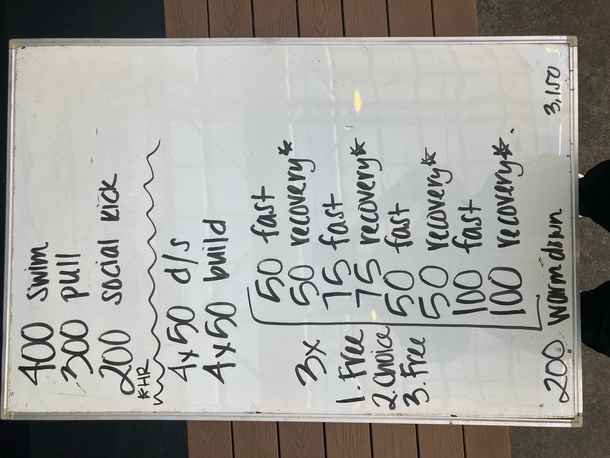 400 swim
300 pull
200 social kick
*HR
4x50 d/s
4x50 build
3x
1. Free
2. Choice
3. Free
50 fast
50 recovery*
75 fast
75 recovery*
50 fast
50 recovery*
100 fast
100 recovery*.
200 warmdown
3,150